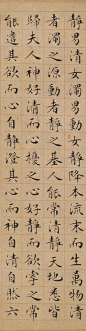 靜男清女濁男動女靜降本流末而生萬物清
者濁之源動者靜之基人能常清靜天地悉皆
歸夫人神好清而心擾之心好靜而欲牽之常
能遣其欲而心自靜澄其心而神自清自然六